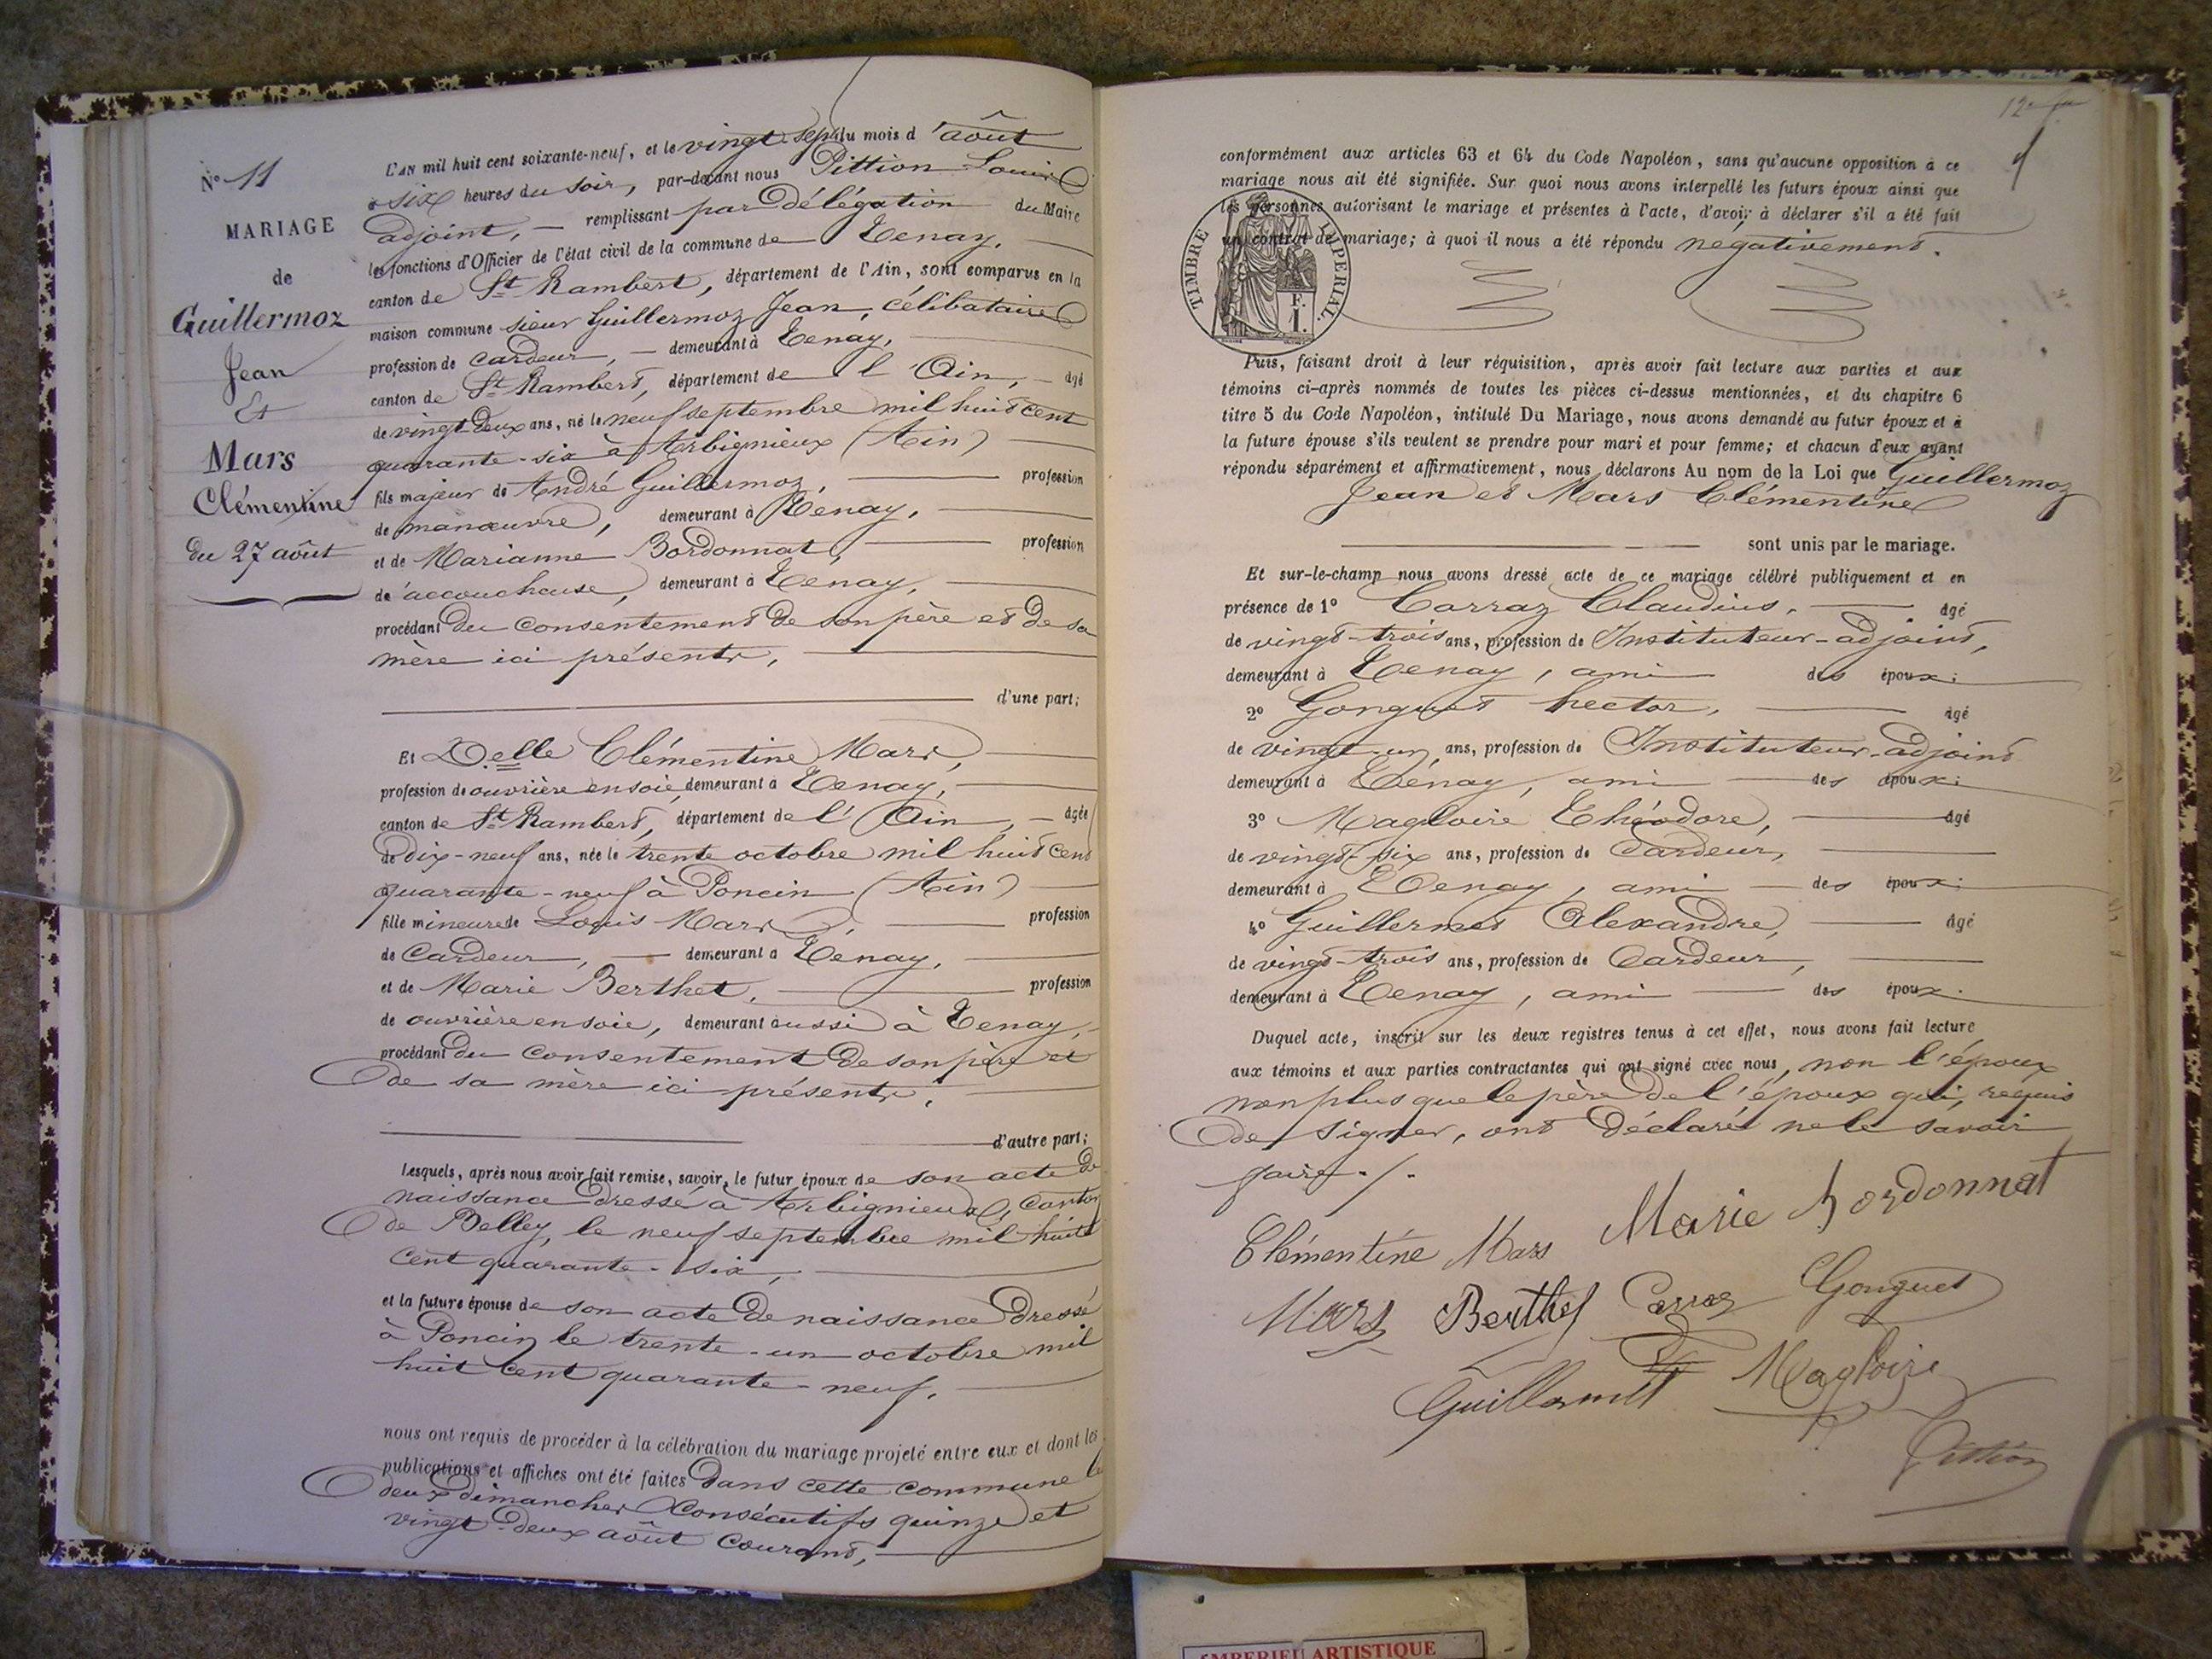 N° 11
MARIAGE
de
Guillermoz
Jean
Et
Mars
Clémentine
du 27 août
L'AN mil huit cent soixante-neuf, et le vingt sept du mois d'août
à six heures du soir, par-devant nous Pittion Louis
adjoint, — remplissant par délégation du Maire
les fonctions d'Officier de l'état civil de la commune de Tenay,
canton de St Rambert, département de l'Ain, sont comparus en la
maison commune sieur Guillermoz Jean, célibataire
profession de cardeur, — demeurant à Tenay,
canton de St Rambert, département de l'Ain, — âgé
de vingt deux ans, né le neuf septembre mil huit cent
quarante-six à Arbignieux (Ain)
fils majeur de André Guillermoz, profession
de manœuvre, demeurant à Tenay,
et de Marianne Bordonnat, profession
de accoucheuse, demeurant à Tenay,
procédant du consentement de son père et de sa
mère ici présents,
d'une part;
Et Delle Clémentine Mars,
profession de ouvrière en soie, demeurant à Tenay,
canton de St Rambert, département de l'Ain, — âgée
de dix-neuf ans, née le trente octobre mil huit cent
quarante-neuf à Poncin (Ain)
fille mineure de Louis Mars, profession
de cardeur, — demeurant à Tenay,
et de Marie Berthet, profession
de ouvrière en soie, demeurant aussi à Tenay,
procédant du consentement de son père et
de sa mère ici présents,
d'autre part;
Lesquels, après nous avoir fait remise, savoir, le futur époux de son acte de
naissance dressé à Arbignieux, canton
de Belley, le neuf septembre mil huit
cent quarante-six,
et la future épouse de son acte de naissance dressé
à Poncin le trente-un octobre mil
huit cent quarante-neuf,
nous ont requis de procéder à la célébration du mariage projeté entre eux et dont les
publications et affiches ont été faites dans cette commune les
deux dimanches consécutifs quinze et
vingt-deux août courant,
12e
conformément aux articles 63 et 64 du Code Napoléon, sans qu'aucune opposition à ce
mariage nous ait été signifiée. Sur quoi nous avons interpellé les futurs époux ainsi que
les personnes autorisant le mariage et présentes à l'acte, d'avoir à déclarer s'il a été fait
un contrat de mariage; à quoi il nous a été répondu négativement.
TIMBRE IMPERIAL.
F.
I.
Puis, faisant droit à leur réquisition, après avoir fait lecture aux parties et aux
témoins ci-après nommés de toutes les pièces ci-dessus mentionnées, et du chapitre 6
titre 5 du Code Napoléon, intitulé Du Mariage, nous avons demandé au futur époux et à
la future épouse s'ils veulent se prendre pour mari et pour femme; et chacun d'eux ayant
répondu séparément et affirmativement, nous déclarons Au nom de la Loi que Guillermoz
Jean et Mars Clémentine
sont unis par le mariage.
Et sur-le-champ nous avons dressé acte de ce mariage célébré publiquement et en
présence de 1° Carraz Claudius, âgé
de vingt-trois ans, profession de Instituteur-adjoint,
demeurant à Tenay, ami des époux;
2° Gonguet hector, âgé
de vingt-un ans, profession de Instituteur-adjoint
demeurant à Tenay, ami des époux;
3° Magloire Théodore, âgé
de vingt-six ans, profession de Cardeur,
demeurant à Tenay, ami des époux;
4° Guillermet Alexandre, âgé
de vingt-trois ans, profession de Cardeur,
demeurant à Tenay, ami des époux.
Duquel acte, inscrit sur les deux registres tenus à cet effet, nous avons fait lecture
aux témoins et aux parties contractantes qui ont signé avec nous, non l'époux
non plus que le père de l'époux qui, requis
de signer, ont déclaré ne le savoir
faire ./.
Clémentine Mars Marie bordonnat
Mars Berthet Carraz Gonguet
Guillermet Magloire
Pittion
AMBERIEU ARTISTIQUE